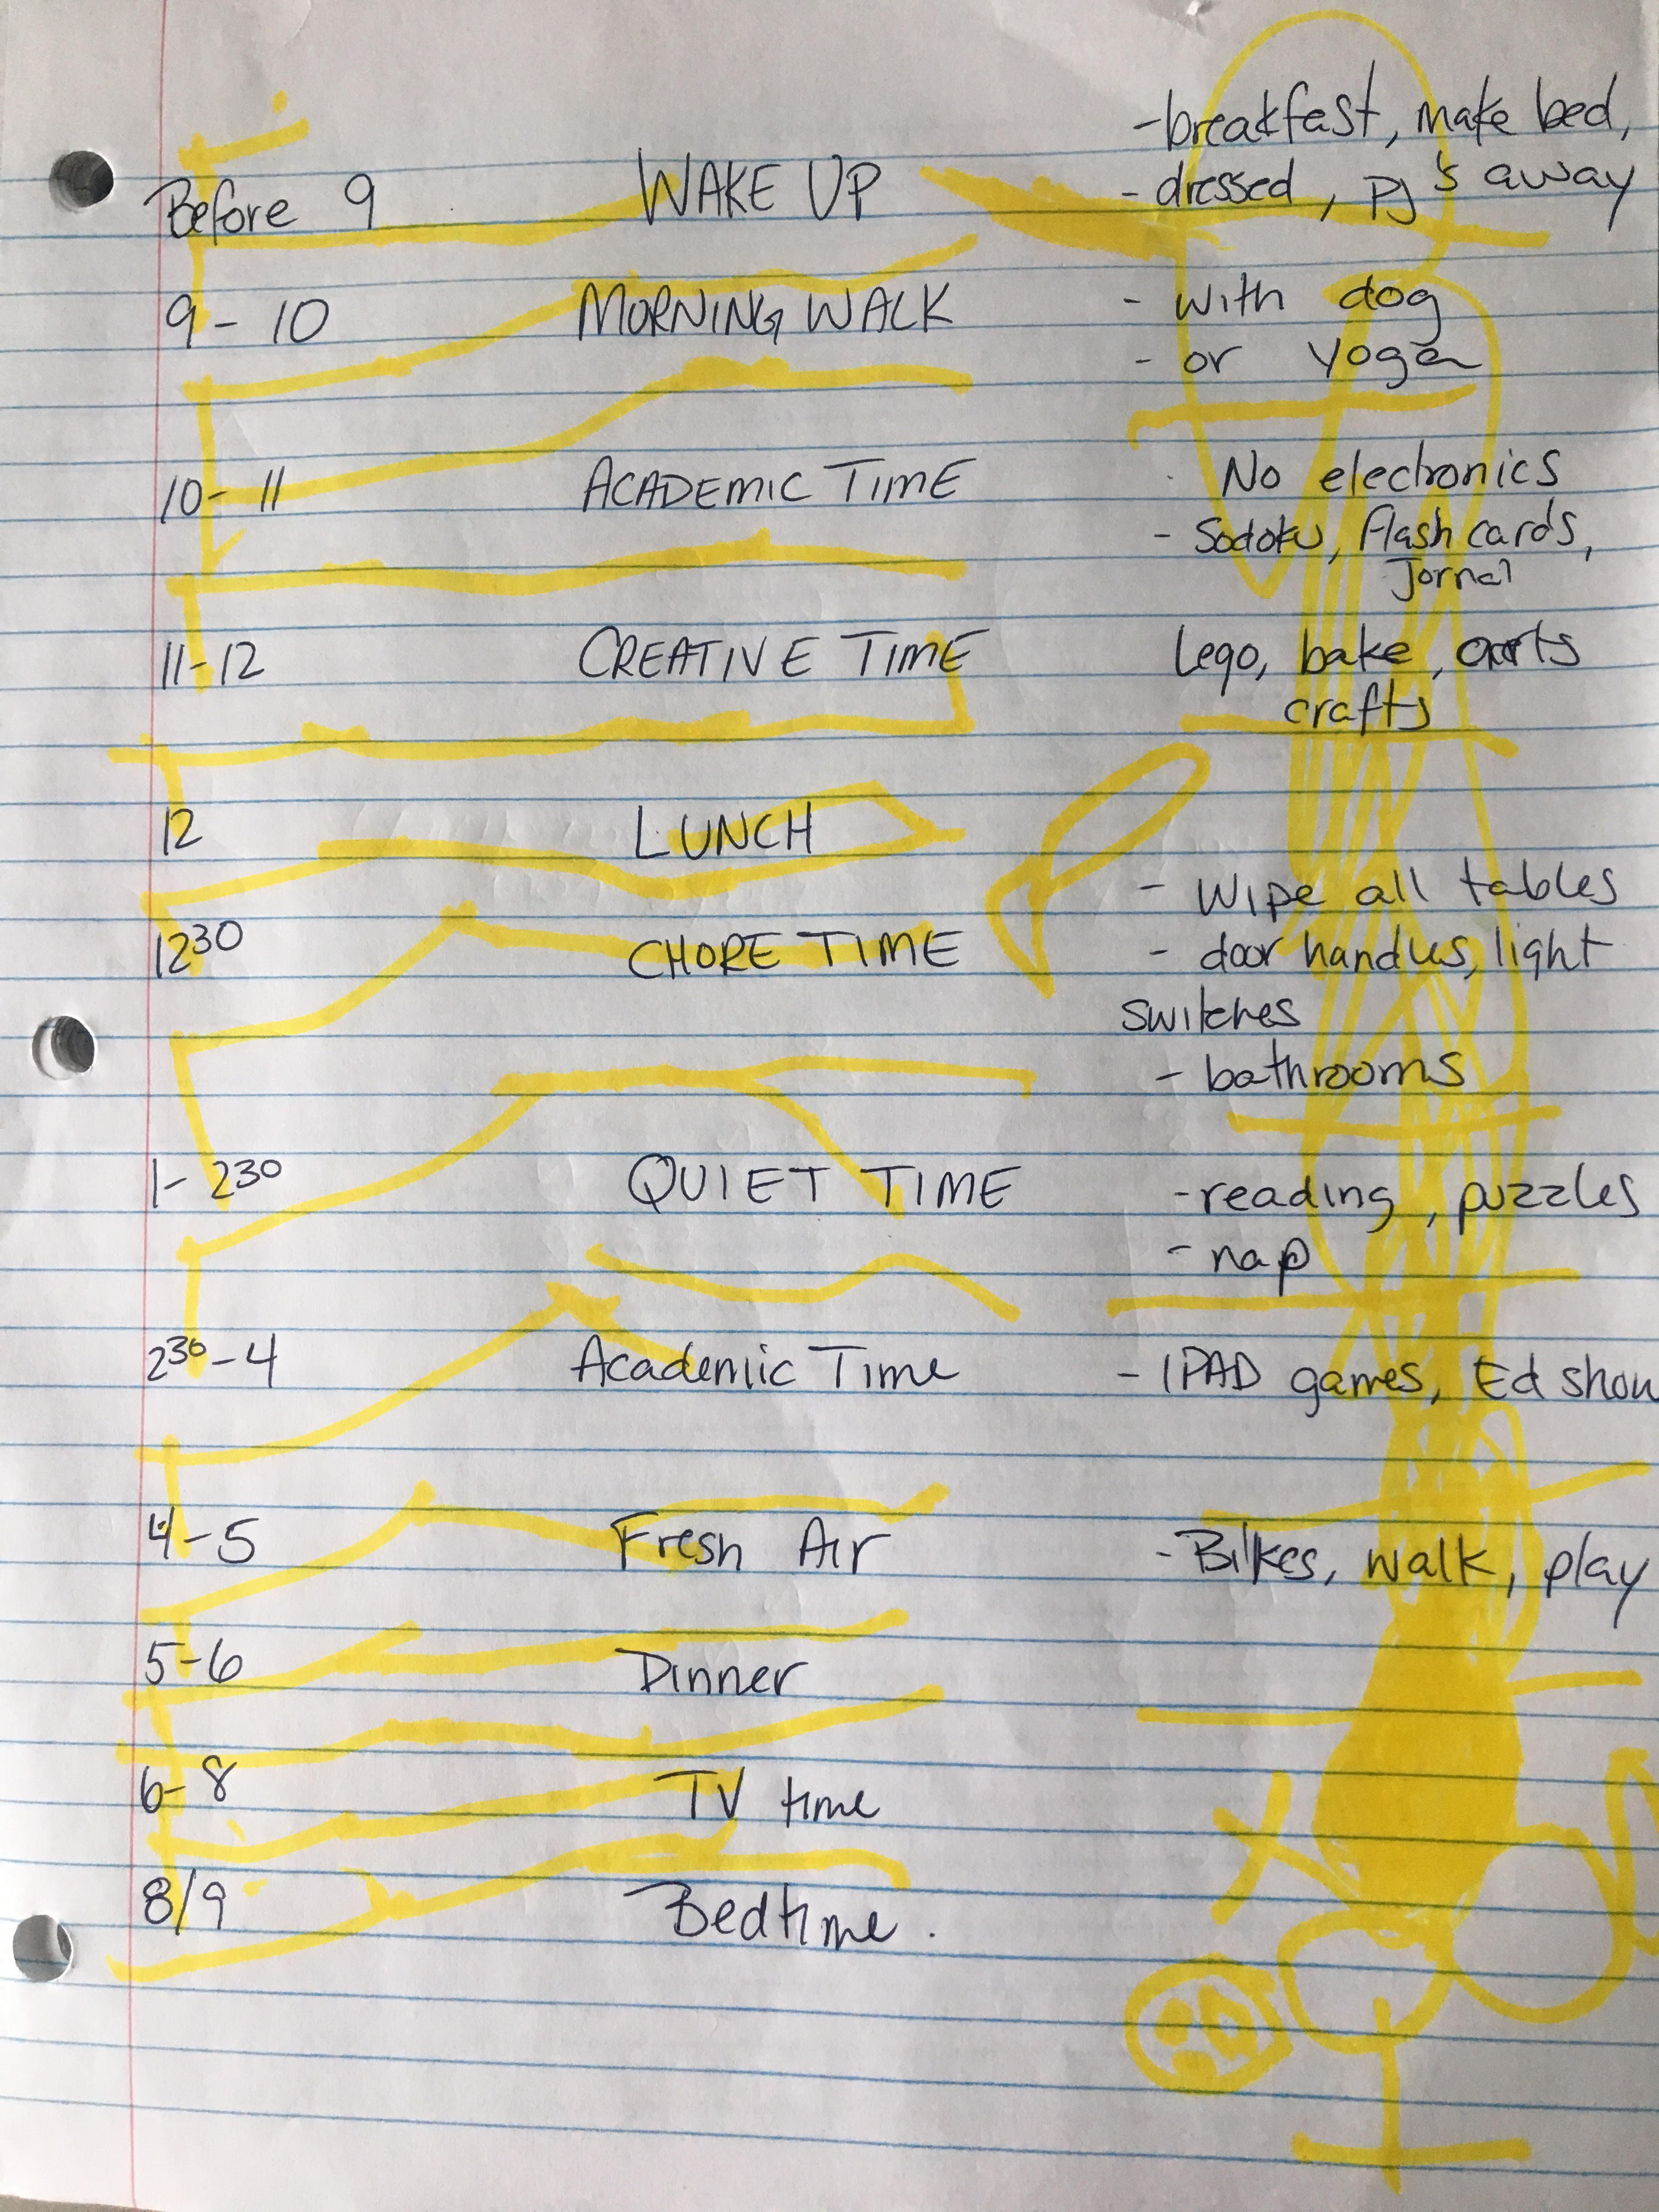 -breakfast, make bed,
Before 9 WAKE UP - dressed, PJ's away
9 - 10 MORNING WALK - with dog
- or yoga
10 - 11 ACADEMIC TIME No electronics
- Sodoku, flash cards,
Jornal
11-12 CREATIVE TIME Lego, bake, arts
crafts
12 LUNCH
- Wipe all tables
12 30 CHORE TIME - door handles, light
switches
- bathrooms
1 - 2 30 QUIET TIME - reading, puzzles
- nap
2 30 - 4 Academic Time - IPAD games, Ed show
4 - 5 Fresh Air - Bikes, walk, play
5-6 Dinner
6-8 TV time
8/9 Bedtime.